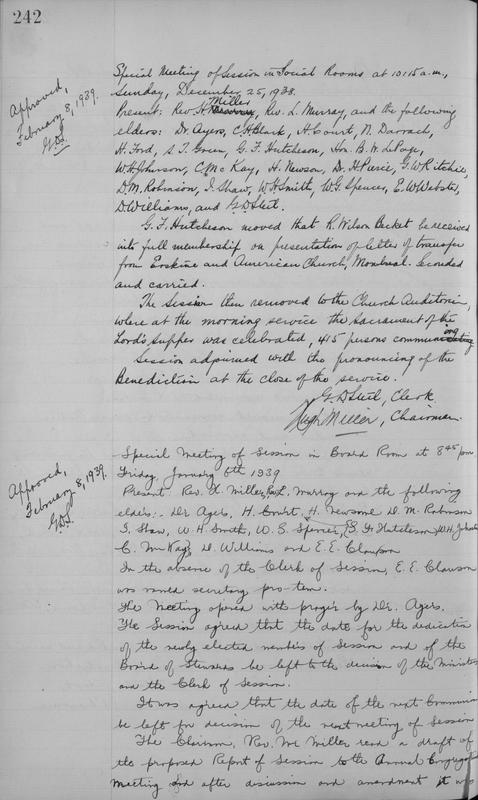 242
Approved,
February 8, 1939.
GDS
Special Meeting of Session in Social Rooms at 10:15 a.m.,
Sunday, December 25, 1938.
Present: Rev. H. Miller, Rev. L. Murray, and the following
elders: Dr. Ayers, C.H. Clark, H. Court, N. Darrach,
H. Ford, S.T. Green, G.F. Hutcheson, Hon. B.W. LePage,
W.H. Johnson, C. McKay, H. Newson, Dr. H. Pierce, G.W. Ritchie,
D.M. Robinson, J. Shaw, W.H. Smith, W.G. Spencer, E.W. Webster,
D. Williams, and G.D. Steel.
G.F. Hutcheson moved that R. Wilson Becket be received
into full membership on presentation of letter of transfer
from Erskine and American Church, Montreal. Seconded
and carried.
The Session then removed to the Church Auditorium,
where at the morning service the Sacrament of the
Lord's Supper was celebrated, 415 persons communing
Session adjourned with the pronouncing of the
Benediction at the close of the service.
G.D. Steel, Clerk
Hugh Miller, Chairman.
Approved,
February 8, 1939.
GDS.
Special Meeting of Session in Board Room at 8 45 pm
Friday January 6th 1939
Present Rev. H. Miller, Rev. L. Murray and the following
elders:- Dr Ayers, H. Court, H. Newsome D. M. Robinson
J. Shaw, W. H. Smith, W. G. Spencer, G. F. Hutcheson, W.H. Johnson
C. McKay, D. Williams and E. E. Clawson
In the absence of the Clerk of Session, E. E. Clawson
was named secretary pro-tem.
The Meeting opened with prayer by Dr. Ayers.
The Session agreed that the date for the dedication
of the newly elected members of Session and of the
Board of Stewards be left to the decision of the Minister
and the Clerk of Session.
It was agreed that the date of the next Communion
be left for decision of the next meeting of Session
The Chairman, Rev. Mr Miller read a draft of
the proposed Report of Session to the Annual Congregat
Meeting and after discussion and amendment it was